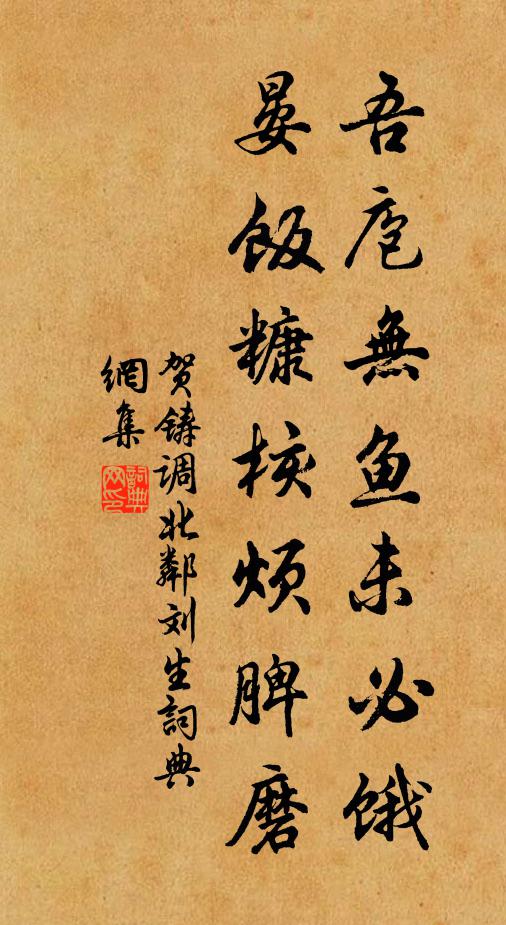 吾庖無鱼未必饿
晏饭糠核烦脾磨
贺铸调北鄰刘生詞典
網集
詞典
网印